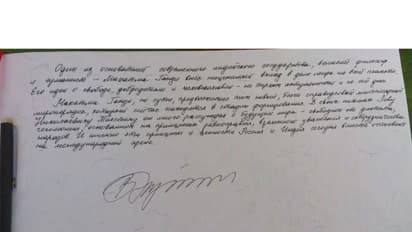 Один из основателей современного индийского государства, великий философ
и гуманист – Махатма Ганди внес неоценимый вклад в дело мира на всей планете.
Его идеи о свободе, добродетели и человеколюбии – не теряют актуальности и по сей день.
Махатма Ганди, по сути, предвосхитил тот новый, более справедливый многополярный
миропорядок, который сейчас находится в стадии формирования. В своих письмах Льву
Николаевичу Толстому он много рассуждал о будущем мира – свободном от диктата,
гегемонии, основанном на принципах равноправия, взаимного уважения и сотрудничества
народов. И именно эти принципы и ценности Россия и Индия сегодня вместе отстаивают
на международной арене.